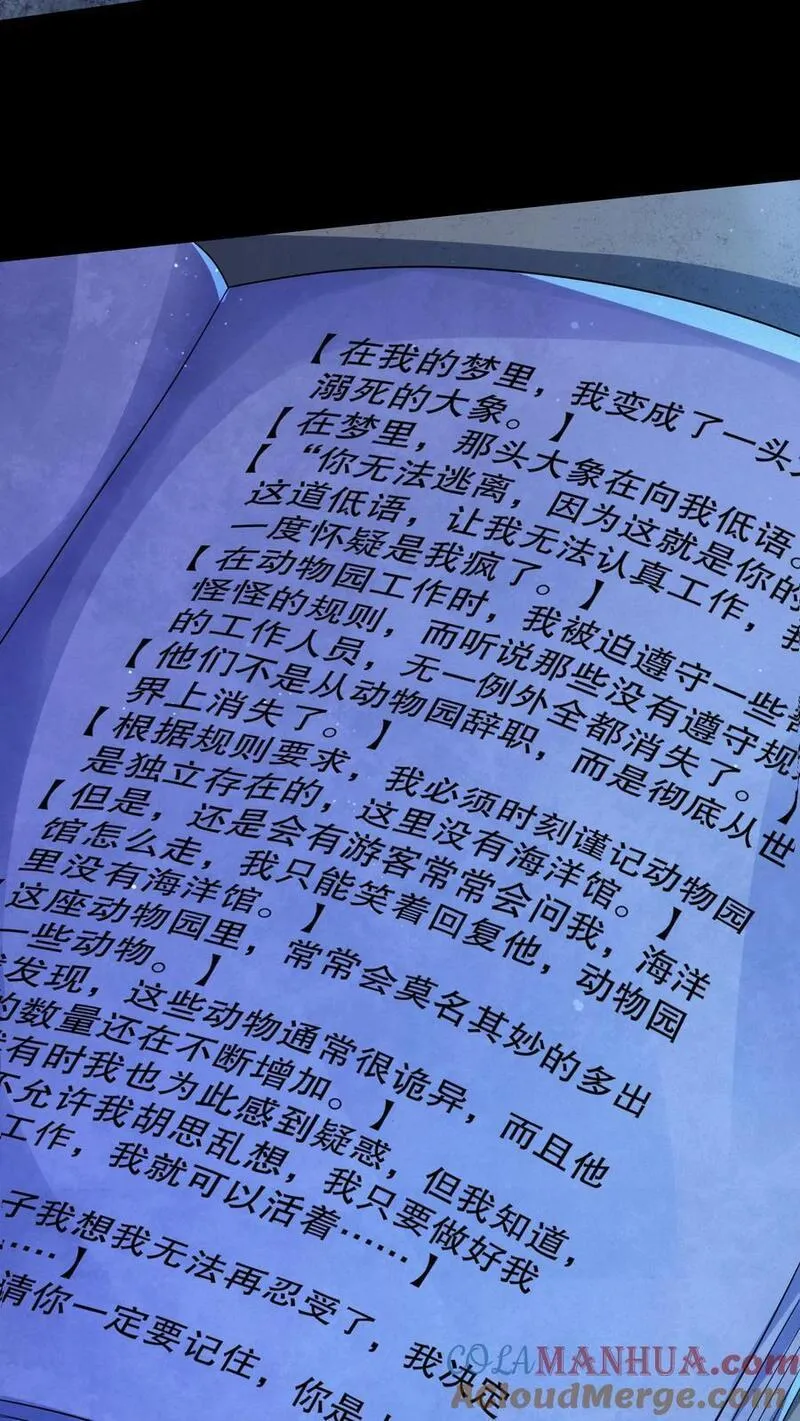 【在我的梦里，我变成了一头
溺死的大象。】
【在梦里，那头大象在向我低语。
【“你无法逃离，因为这就是你的
这道低语，让我无法认真工作，我
一度怀疑是我疯了。】
【在动物园工作时，我被迫遵守一些
怪怪的规则，而听说那些没有遵守规
的工作人员，无一例外全都消失了。】
【他们不是从动物园辞职，而是彻底从世
界上消失了。】
【根据规则要求，我必须时刻谨记动物园
是独立存在的，这里没有海洋馆。】
【但是，还是会有游客常常会问我，海洋
馆怎么走，我只能笑着回复他，动物园
里没有海洋馆。】
这座动物园里，常常会莫名其妙的多出
一些动物。】
发现，这些动物通常很诡异，而且他
的数量还在不断增加。】
有时我也为此感到疑惑，但我知道，
不允许我胡思乱想，我只要做好我
工作，我就可以活着……】
子我想我无法再忍受了，我决定
……】
请你一定要记住，你是
COLAMANHUA.COM
AcloudMerge.com